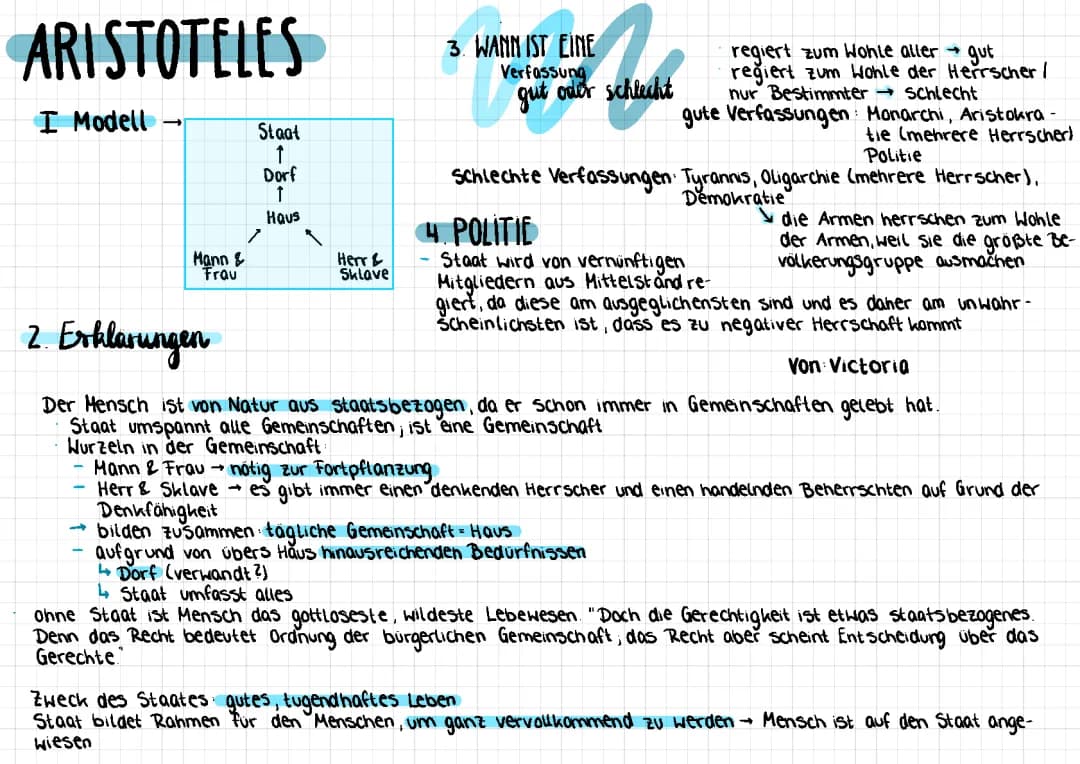 ARISTOTELES
I Modell →
Staat
↑
Dorf
↑
Haus
Mann &
Frau
Herr &
Sklave
2. Erklärungen
3. WANN IST EINE
Verfassung
gut oder schlecht
regiert zum Wohle aller → gut
regiert zum Wohle der Herrscher /
nur Bestimmter → schlecht
gute Verfassungen: Monarchi, Aristokra-
tie (mehrere Herrscher)
Politie
Schlechte Verfassungen: Tyrannis, Oligarchie (mehrere Herrscher),
Demokratie
↘ die Armen herrschen zum Wohle
der Armen, weil sie die größte Be-
völkerungsgruppe ausmachen
4. POLITIE
- Staat wird von vernünftigen
Mitgliedern aus Mittelstand re-
giert, da diese am ausgeglichensten sind und es daher am unwahr-
scheinlichsten ist, dass es zu negativer Herrschaft kommt
Von: Victoria
Der Mensch ist von Natur aus staatsbezogen, da er schon immer in Gemeinschaften gelebt hat.
· Staat umspannt alle Gemeinschaften; ist eine Gemeinschaft
· Wurzeln in der Gemeinschaft:
- Mann & Frau → nötig zur Fortpflanzung
- Herr & Sklave → es gibt immer einen denkenden Herrscher und einen handelnden Beherrschten auf Grund der
Denkfähigkeit
→ bilden zusammen: tägliche Gemeinschaft = Haus
- aufgrund von übers Haus hinausreichenden Bedürfnissen
↳ Dorf (verwandt?)
↳ Staat umfasst alles
· ohne Staat ist Mensch das gottloseste, wildeste Lebewesen. "Doch die Gerechtigkeit ist etwas staatsbezogenes.
Denn das Recht bedeutet Ordnung der bürgerlichen Gemeinschaft; das Recht aber scheint Entscheidung über das
Gerechte."
Zweck des Staates: gutes, tugendhaftes Leben
Staat bildet Rahmen für den Menschen, um ganz vervollkommend zu werden → Mensch ist auf den Staat ange-
wiesen